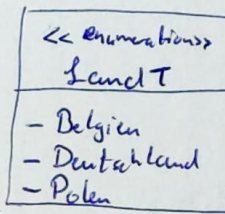 << enumeration>>
LandT
- Belgien
- Deutschland
- Polen